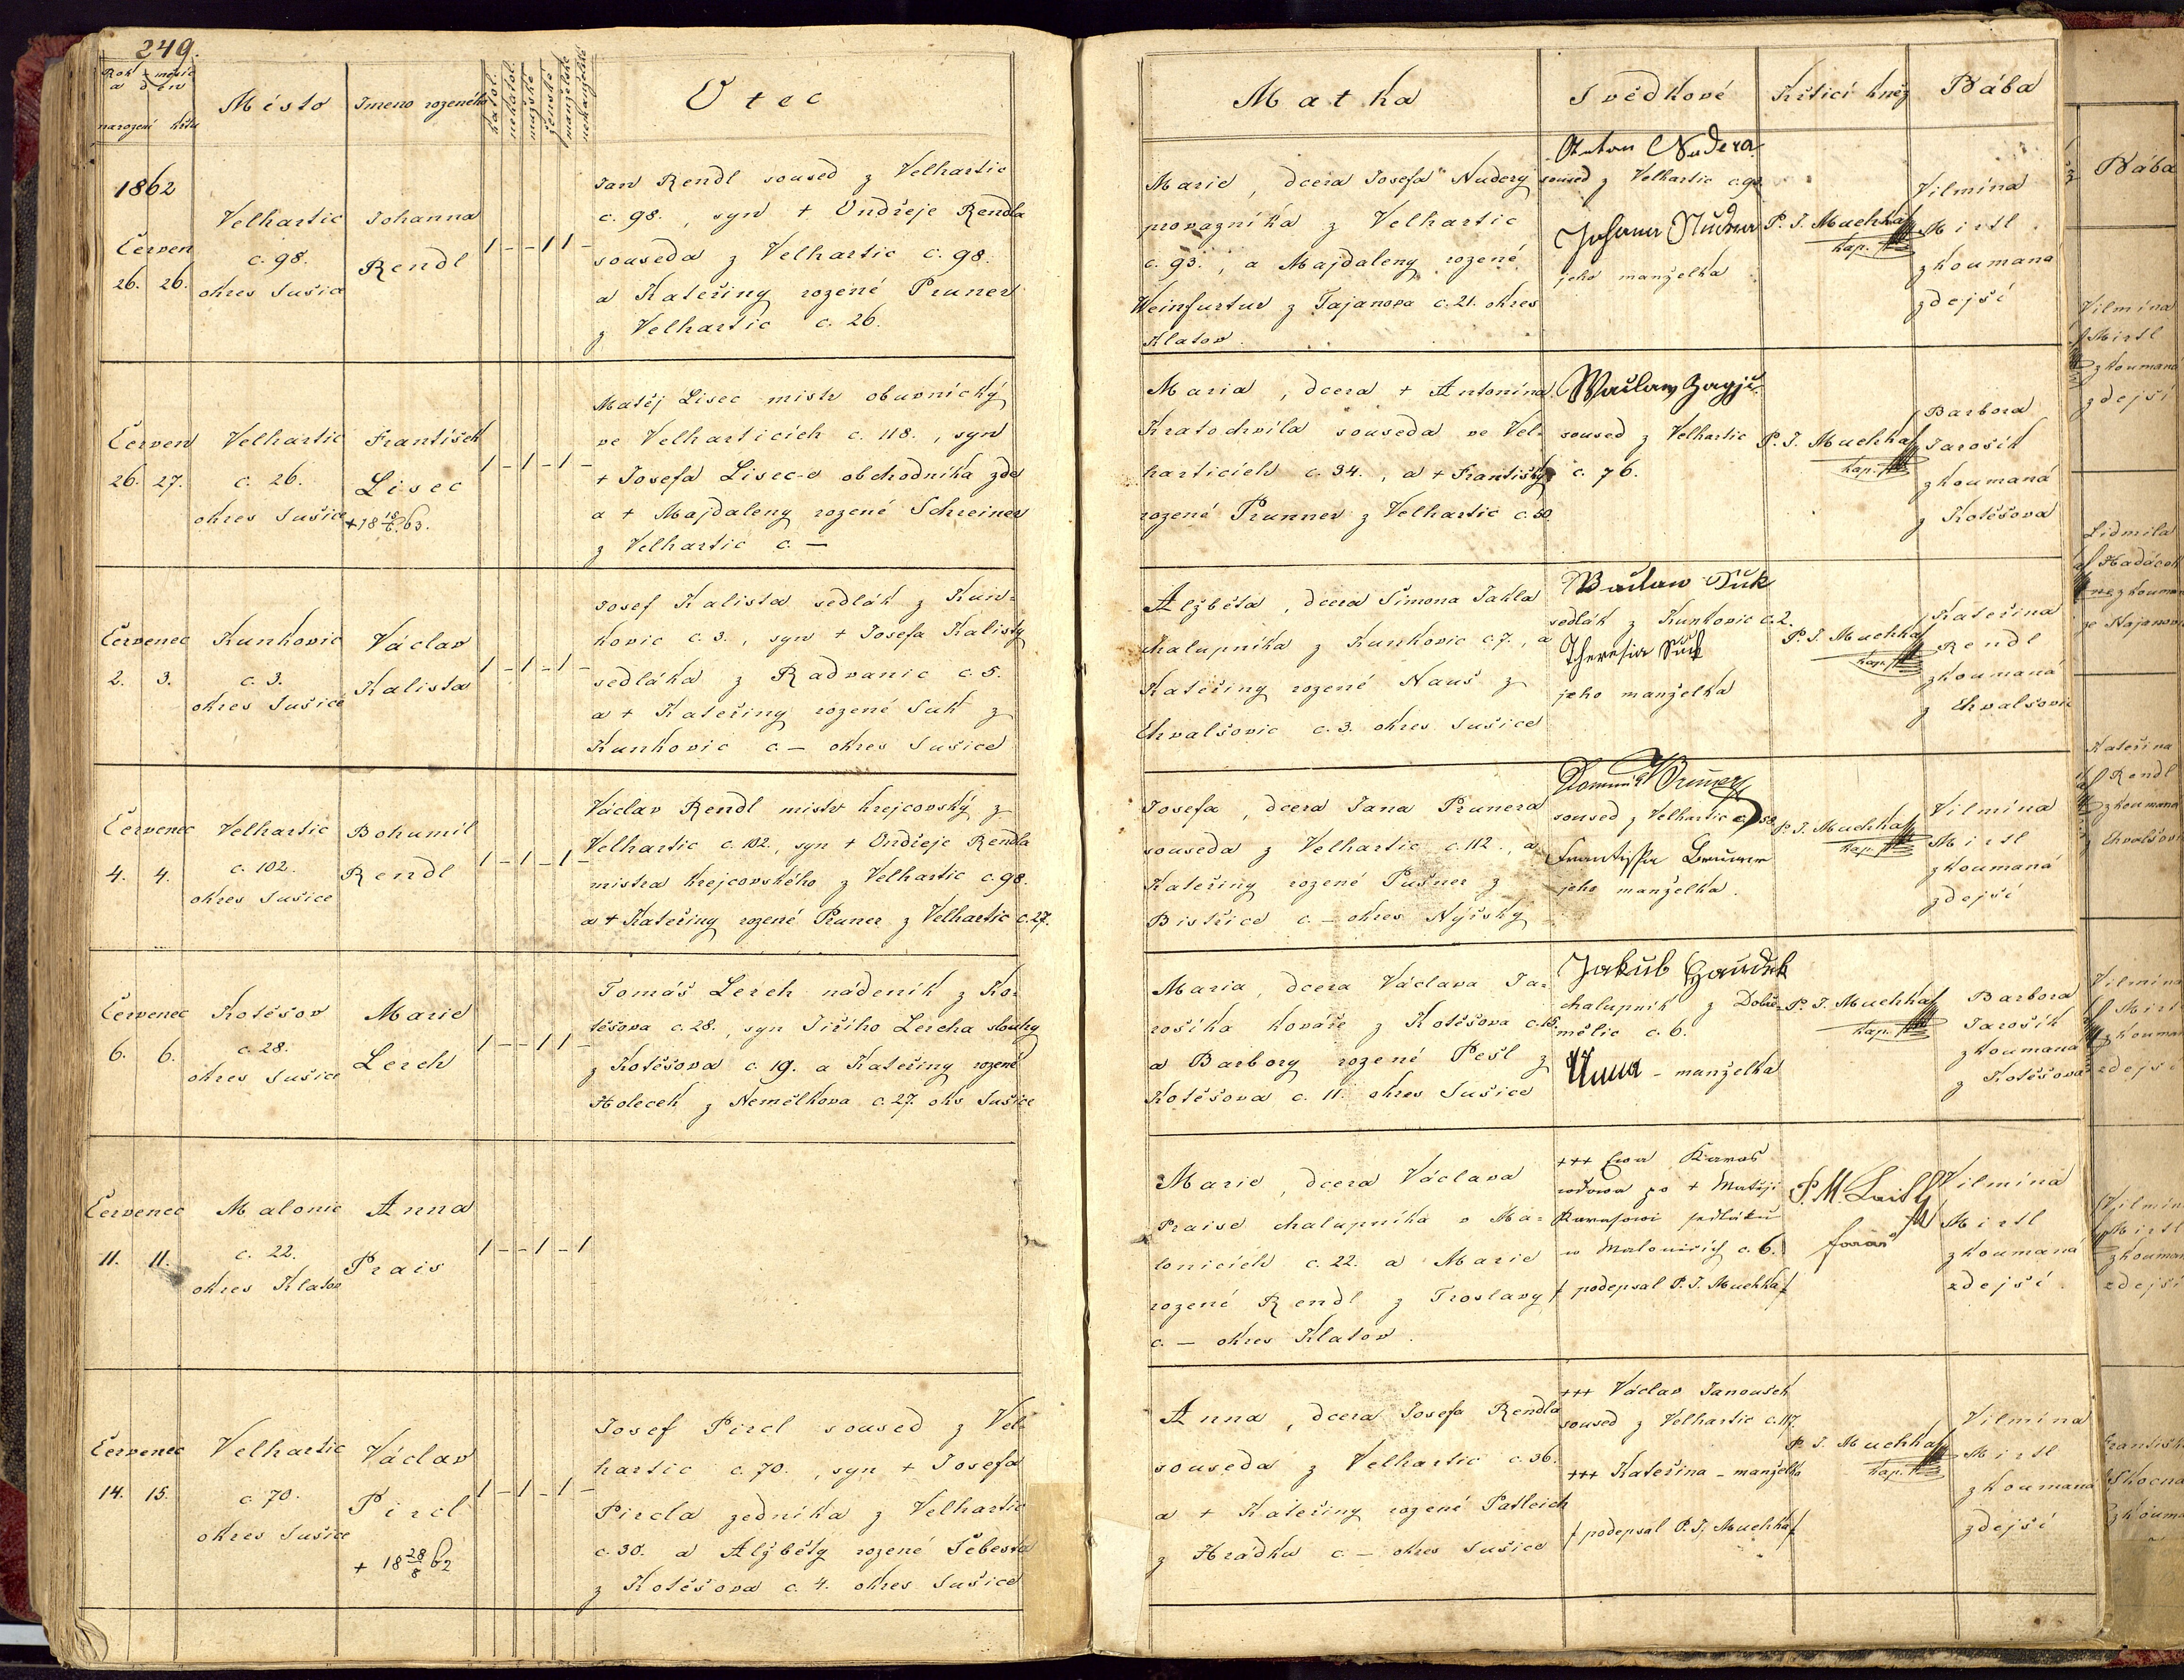 249.
Rok + měsíc
a den
narození křtu
Místo
Jmeno rozeného
katol.
nekatol.
mužské
ženské
manželské
nemanželské
Otec
Matka
Svědkové
Křticí kněz
Bába
1862
Červen
26. 26.
Velhartic
c. 98.
okres Sušice
Johanna
Rendl
1 - - 1 1 -
Jan Rendl soused z Velhartic
c. 98., syn + Ondřeje Rendla
souseda z Velhartic c. 98.
a Kateřiny rozené Pruner
z Velhartic c. 26.
Marie, dcera Josefa Nudery
provazníka z Velhartic
c. 93., a Majdaleny rozené
Weinfurtur z Tajanova c. 21. okres
Klatov.
Anton Nudera
soused z Velhartic c. 93.
Johana Nudera
jeho manželka
P. J. Muchka
kap.
Vilmína
Mirtl
zkoumaná
zdejší
Červen
26. 27.
Velhartic
c. 26.
okres Sušice
František
Lisec
+ 18 18/6 63.
1 - 1 - 1 -
Matěj Lisec mistr obuvnický
ve Velharticích c. 118., syn
+ Josefa Lisec-e obchodníka zde
a + Majdaleny rozené Schreiner
z Velhartic c. —
Maria, dcera + Antonína
Kratochvíla souseda ve Vel-
harticích c. 34., a + Františky
rozené Prunner z Velhartic c. 50
Waclaw
soused z Velhartic
c. 76.
P. J. Muchka
kap.
Barbora
Jarošík
zkoumaná
z Kotěšova
Červenec
2. 3.
Kunkovic
c. 3.
okres Sušice
Václav
Kalista
1 - 1 - 1 -
Josef Kalista sedlák z Kun-
kovic c. 3., syn + Josefa Kalisty
sedláka z Radvanic c. 5.
a + Kateřiny rozené Suk z
Kunkovic c. — okres Sušice
Alžběta, dcera Šimona Jakla
chalupníka z Kunkovic c. 7., a
Kateřiny rozené Nauš z
Chvalšovic c. 3. okres Sušice
Wačlaw Suk
sedlák z Kunkovic c. 2.
Theresia Suk
jeho manželka
P. J. Muchka
kap.
Kateřina
Rendl
zkoumaná
z Chvalšovic
Červenec
4. 4.
Velhartic
c. 102.
okres Sušice
Bohumil
Rendl
1 - 1 - 1 -
Václav Rendl mistr krejcovský z
Velhartic c. 102., syn + Ondřeje Rendla
mistra krejcovského z Velhartic c. 98.
a + Kateřiny rozené Pruner z Velhartic c. 27.
Josefa, dcera Jana Prunera
souseda z Velhartic c. 112., a
Kateřiny rozené Pušner z
Bistřice c. — okres Nýrsky
Dominik Pruner
soused z Velhartic c. 50.
Frantisska Bruner
jeho manželka.
P. J. Muchka
kap.
Vilmína
Mirtl
zkoumaná
zdejší
Červenec
6. 6.
Kotěšov
c. 28.
okres Sušice
Marie
Lerch
1 - - 1 1 -
Tomáš Lerch nádeník z Ko-
těšova c. 28., syn Jiřího Lercha slouhy
z Kotěšova c. 19. a Kateřiny rozené
Holecek z Nemělkova c. 27. okr Sušice
Maria, dcera Václava Ja-
rošíka kováře z Kotěšova c. 15.
a Barbory rozené Pešl z
Kotěšova c. 11. okres Sušice
Jakub
chalupník z Dobře-
mělic c. 6.
Anna - manželka
P. J. Muchka
kap.
Barbora
Jarošík
zkoumaná
z Kotěšova
Červenec
11. 11.
Malonic
c. 22.
okres Klatov
Anna
Prais
1 - - 1 - 1
Marie, dcera Václava
Praise chalupníka v Ma-
lonicích c. 22. a Marie
rozené Rendl z Troslavy
c. — okres Klatov.
+++ Ewa Karas
wdowa po + Matěji
Karasowi sedláku
w Malonicích c. 6.
/ podepsal P. J. Muchka /
P. M.
farář
Vilmína
Mirtl
zkoumaná
zdejší
Červenec
14. 15.
Velhartic
c. 70.
okres Sušice
Václav
Pircl
+ 18 28/8 62
1 - 1 - 1 -
Josef Pircl soused z Vel-
hartic c. 70., syn + Josefa
Pircla zedníka z Velhartic
c. 30. a Alžběty rozené Šebesta
z Kotěšova c. 4. okres Sušice
Anna, dcera Josefa Rendla
souseda z Velhartic c. 36.
a + Kateřiny rozené Patleich
z Hrádku c. — okres Sušice
+++ Václav Janoušek
soused z Velhartic c. 117.
+++ Kateřina - manželka
/ podepsal P. J. Muchka /
P. J. Muchka
kap.
Vilmína
Mirtl
zkoumaná
zdejší
Bába
Vilmína
Mirtl
zkoumaná
zdejší
Lidmila
Kateřina
Rendl
zkoumaná